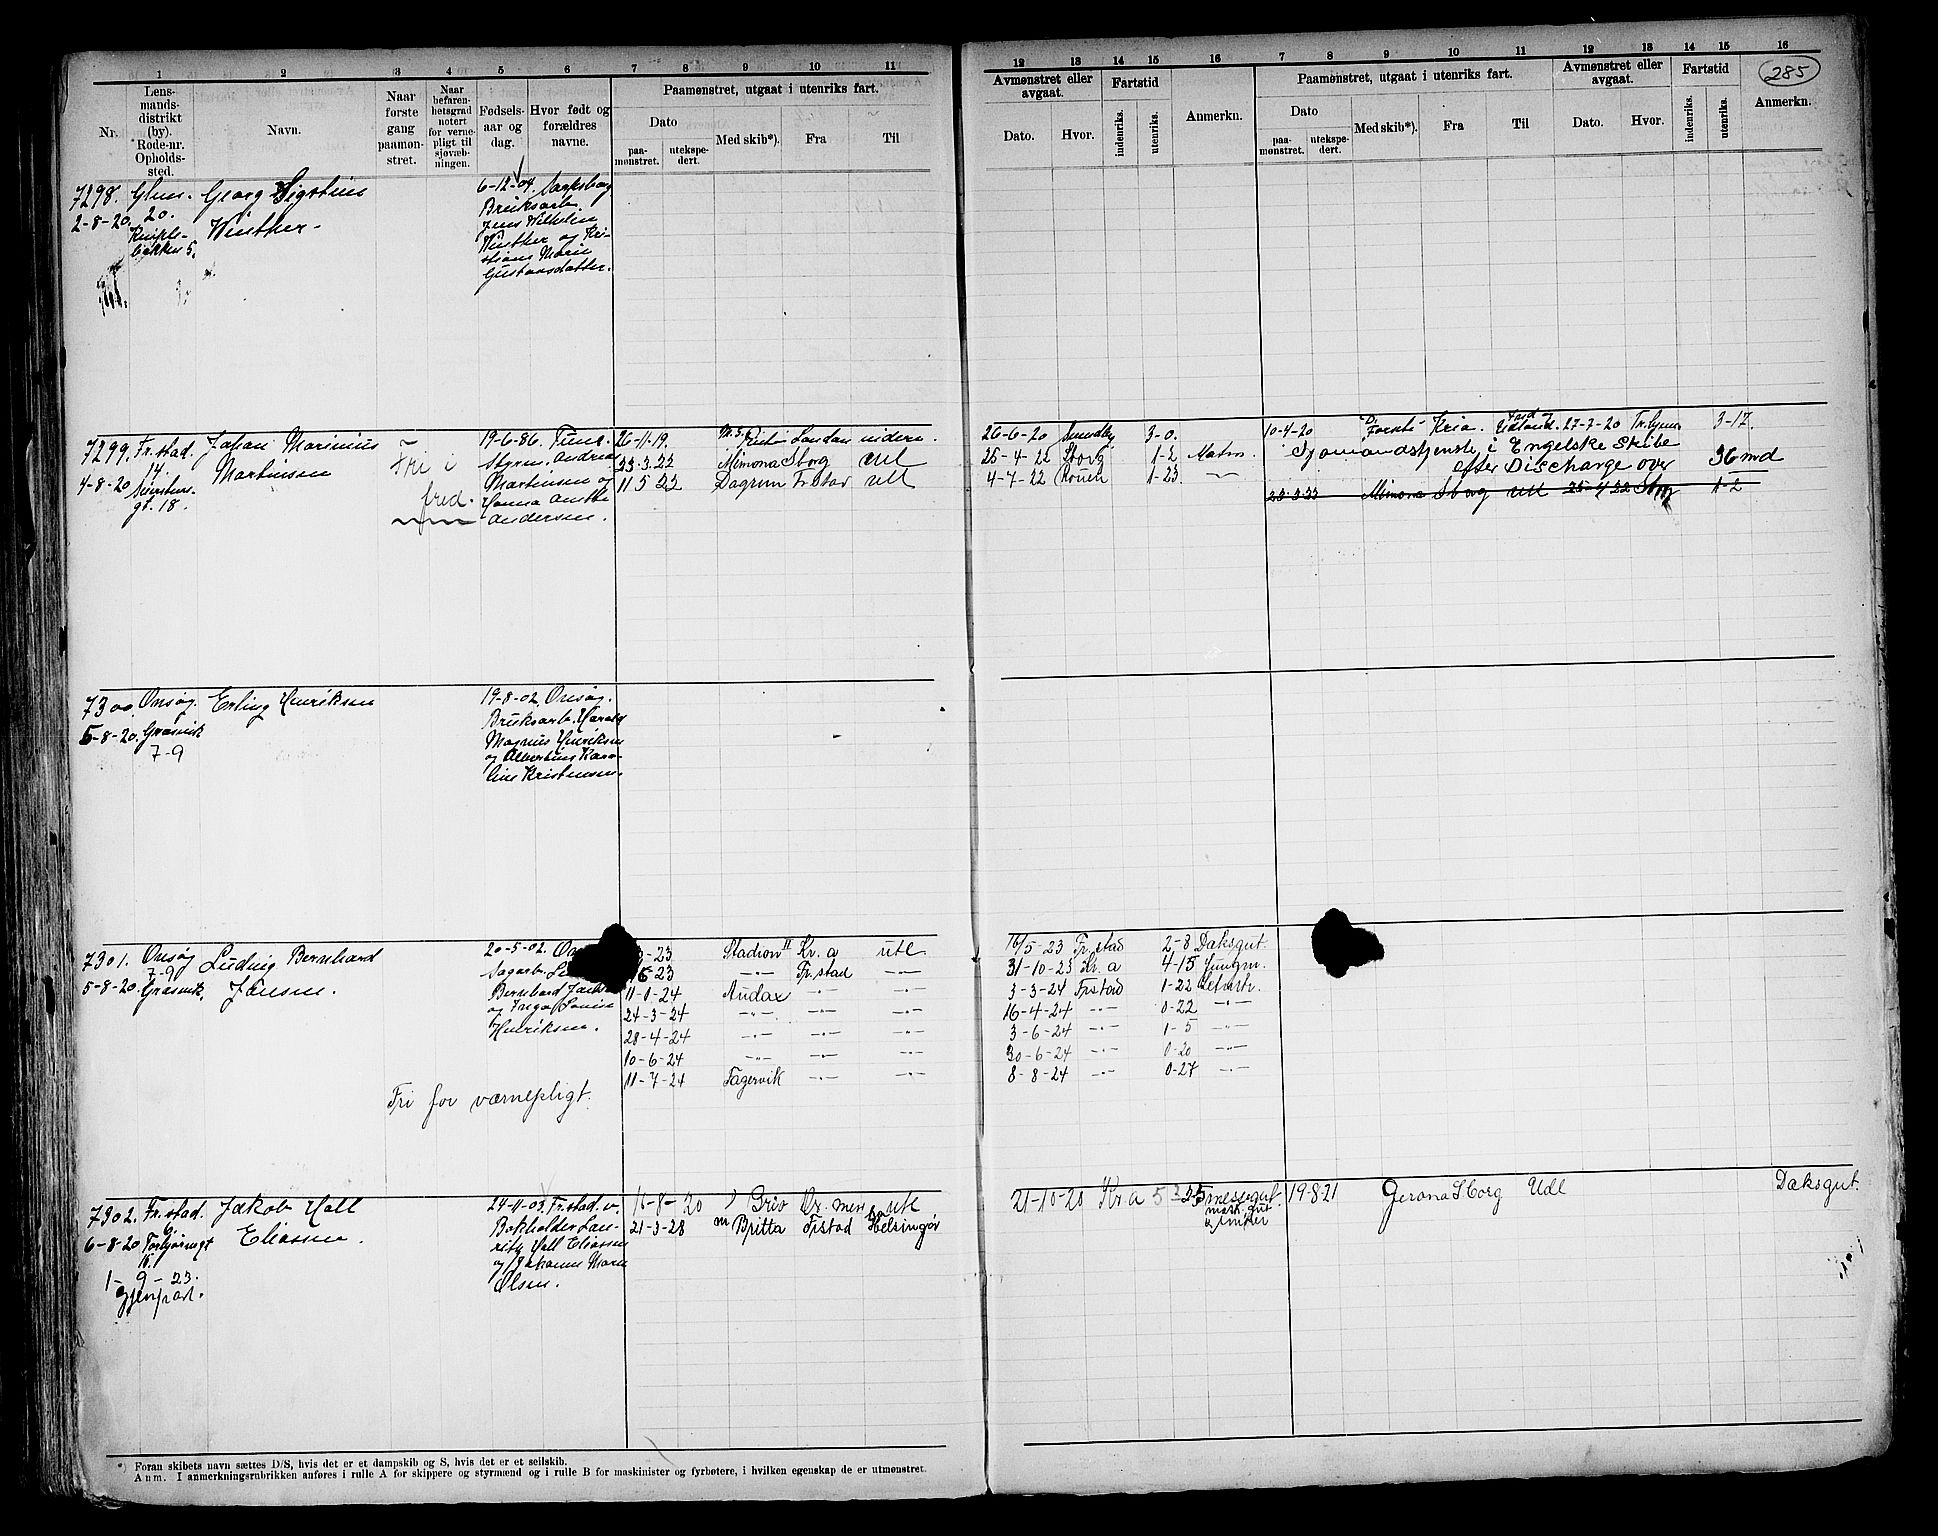 1 2 3 4 5 6 7 8 9 10 11
Nr.
Lens-
mands-
distrikt
(by).
Rode-nr.
Opholds-
sted.
Navn.
Naar
første
gang
paamøn-
stret.
Naar
befaren-
hetsgrad
notert
for verne-
pligt til
sjøvæb-
ningen.
Fødsels-
aar og
dag.
Hvor født og
forældres
navne.
Paamønstret, utgaat i utenriks fart.
Dato
paa-
mønstret.
utekspe-
dert.
Med skib*).
Fra
Til
12 13 14 15 16 7 8 9 10 11 12 13 14 15 16
285
Avmønstret eller
avgaat.
Dato.
Hvor.
Fartstid
indenriks.
utenriks.
Anmerkn.
Paamønstret, utgaat i utenriks fart.
Dato
paa-
mønstret.
utekspe-
dert.
Med skib*).
Fra
Til
Avmønstret eller
avgaat.
Dato.
Hvor.
Fartstid
indenriks.
utenriks.
Anmerkn.
7298.
2-8-20.
20.
5.
Georg
Winther
6-12-04. Sarpsborg
Bruksarb.
Jens Vilhelm
Winther og Kri-
stiane Marie
Gustavsdatter.
7299. Fr.stad.
14.
4-8-20
gt. 18.
Johan Marinius
Martinsen
Fri i
fred.
19-6-86. Tune.
Styrm. Andreas
Martinsen og
Hanna
Andersen.
26-11-19. London videre.
23.3.22 Mimona Sborg Utl
11.5.22 Dagrun Fr.stad Utl
26-6-20 3-0.
25-4-22 Sborg 1-2 Matros
4-7-22 Rouen 1-23. -"-
10-4-20 Kria. 27-7-20 3-17.
Sjømandstjeneste i Engelske Skibe
efter Discharge over 36 md
23.3.22 Mimona Sborg Utl 25-4 22 Sborg 1-2
7300. Onsøy.
5-8-20. Græsvik
7-9
Erling Henriksen
19-8-02. Onsøy.
Bruksarb. Harald
Magnus Henriksen
og Albertine Karo-
line Kristensen.
7301. Onsøy
7-9
5-8-20. Græsvik.
Ludvig Bernhard
Jensen.
Fri for værnepligt.
20-5-02.
Sagarb.
Bernhard
og Inga Louise
Henriksen.
-23 Stadion II Kr.a utl.
-23 -"- Fr.stad -"-
11-1-24 Audax -"- -"-
24-3-24 -"- -"- -"-
28-4-24 -"- -"- -"-
10-6-24 -"- -"- -"-
11-7-24 Fagervik -"- -"-
16/5-23 Fr.stad 2-8 Dæksgut.
31-10-23 Kr.a 4-15 Jungm.
3-3-24 Frstad 1-22 Letmatr.
16-4-24 -"- 0-22 -"-
3-6-24 -"- 1-5 -"-
30-6-24 -"- 0-20 -"-
8-8-24 -"- 0-27 -"-
7302. Fr.stad.
6.
6-8-20
1-9-23.
gjenpart.
Jakob Hall
Eliassen.
24-11-02. Fr.stad. v.
Bokholder Lau-
ritz Hall Eliassen
og Johanne Marie
Olsen.
16-8-20 Griv utl
21-3-28 m Britta Frstad Helsingør
21-10-20 Kr.a messegut
19.8.21 Sborg Udl Dæksgut.
*) Foran skibets navn sættes D/S, hvis det er et dampskib og S, hvis det er et seilskib.
Anm. I anmerkningsrubrikken anføres i rulle A for skippere og styrmænd og i rulle B for maskinister og fyrbøtere, i hvilken egenskap de er utmønstret.